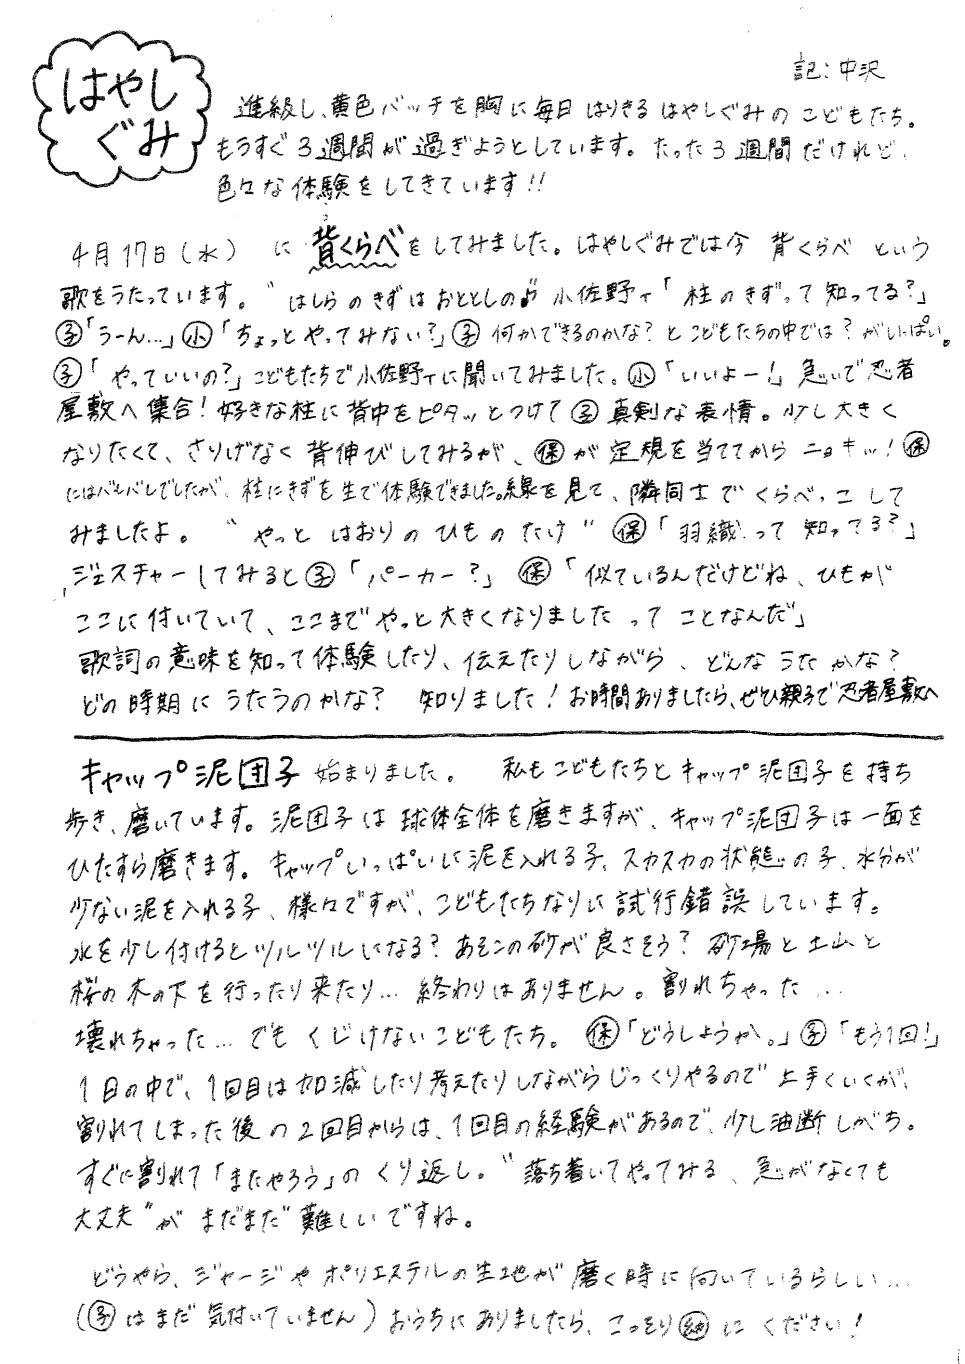 はやし
ぐみ
記:中沢
進級し、黄色バッチを胸に毎日はりきるはやしぐみのこどもたち。
もうすぐ3週間が過ぎようとしています。たった3週間だけれど、
色々な体験をしてきています!!
4月17日(水) に 背くらべをしてみました。はやしぐみでは今 背くらべ という
歌をうたっています。"はしらのきずはおととしの♪"小佐野T「柱のきずって知ってる?」
子「うーん…」小「ちょっとやってみない?」子 何かできるのかな?とこどもたちの中では?がいっぱい。
子「やっていいの?」こどもたちで小佐野Tに聞いてみました。小「いいよー!」急いで忍者
屋敷へ集合!好きな柱に背中をピタッとつけて子真剣な表情。少し大きく
なりたくて、さりげなく背伸びしてみるが、保が定規を当ててからニョキッ!保
にはバレバレでしたが、柱にきずを生で体験できました。線を見て、隣同士でくらべっこして
みましたよ。"やっと はおりの ひもの たけ" 保「羽織って知ってる?」
ジェスチャーしてみると子「パーカー?」 保「似ているんだけどね、ひもが
ここに付いていて、ここまでやっと大きくなりましたって ことなんだ」
歌詞の意味を知って体験したり、伝えたりしながら、どんな うた かな?
どの時期にうたうのかな? 知りました!お時間ありましたら、ぜひ親子で忍者屋敷へ
キャップ泥団子 始まりました。 私もこどもたちとキャップ泥団子を持ち
歩き、磨いています。泥団子は球体全体を磨きますが、キャップ泥団子は一面を
ひたすら磨きます。キャップいっぱいに泥を入れる子、スカスカの状態の子、水分が
少ない泥を入れる子、様々ですが、こどもたちなりに試行錯誤しています。
水を少し付けるとツルツルになる?あそこの砂が良さそう?砂場と土山と
桜の木の下を行ったり来たり…終わりはありません。割れちゃった…
壊れちゃった…でも くじけないこどもたち。 保「どうしようか。」子「もう1回!」
1日の中で、1回目は加減したり考えたりしながらじっくりやるので上手くいくが、
割れてしまった後の2回目からは、1回目の経験があるので、少し油断しがち。
すぐに割れて「またやろう」のくり返し。"落ち着いてやってみる、急がなくても
大丈夫"がまだまだ難しいですね。
どうやら、ジャージやポリエステルの生地が磨く時に向いているらしい…
(子はまだ気付いていません)おうちにありましたら、こっそり に ください!